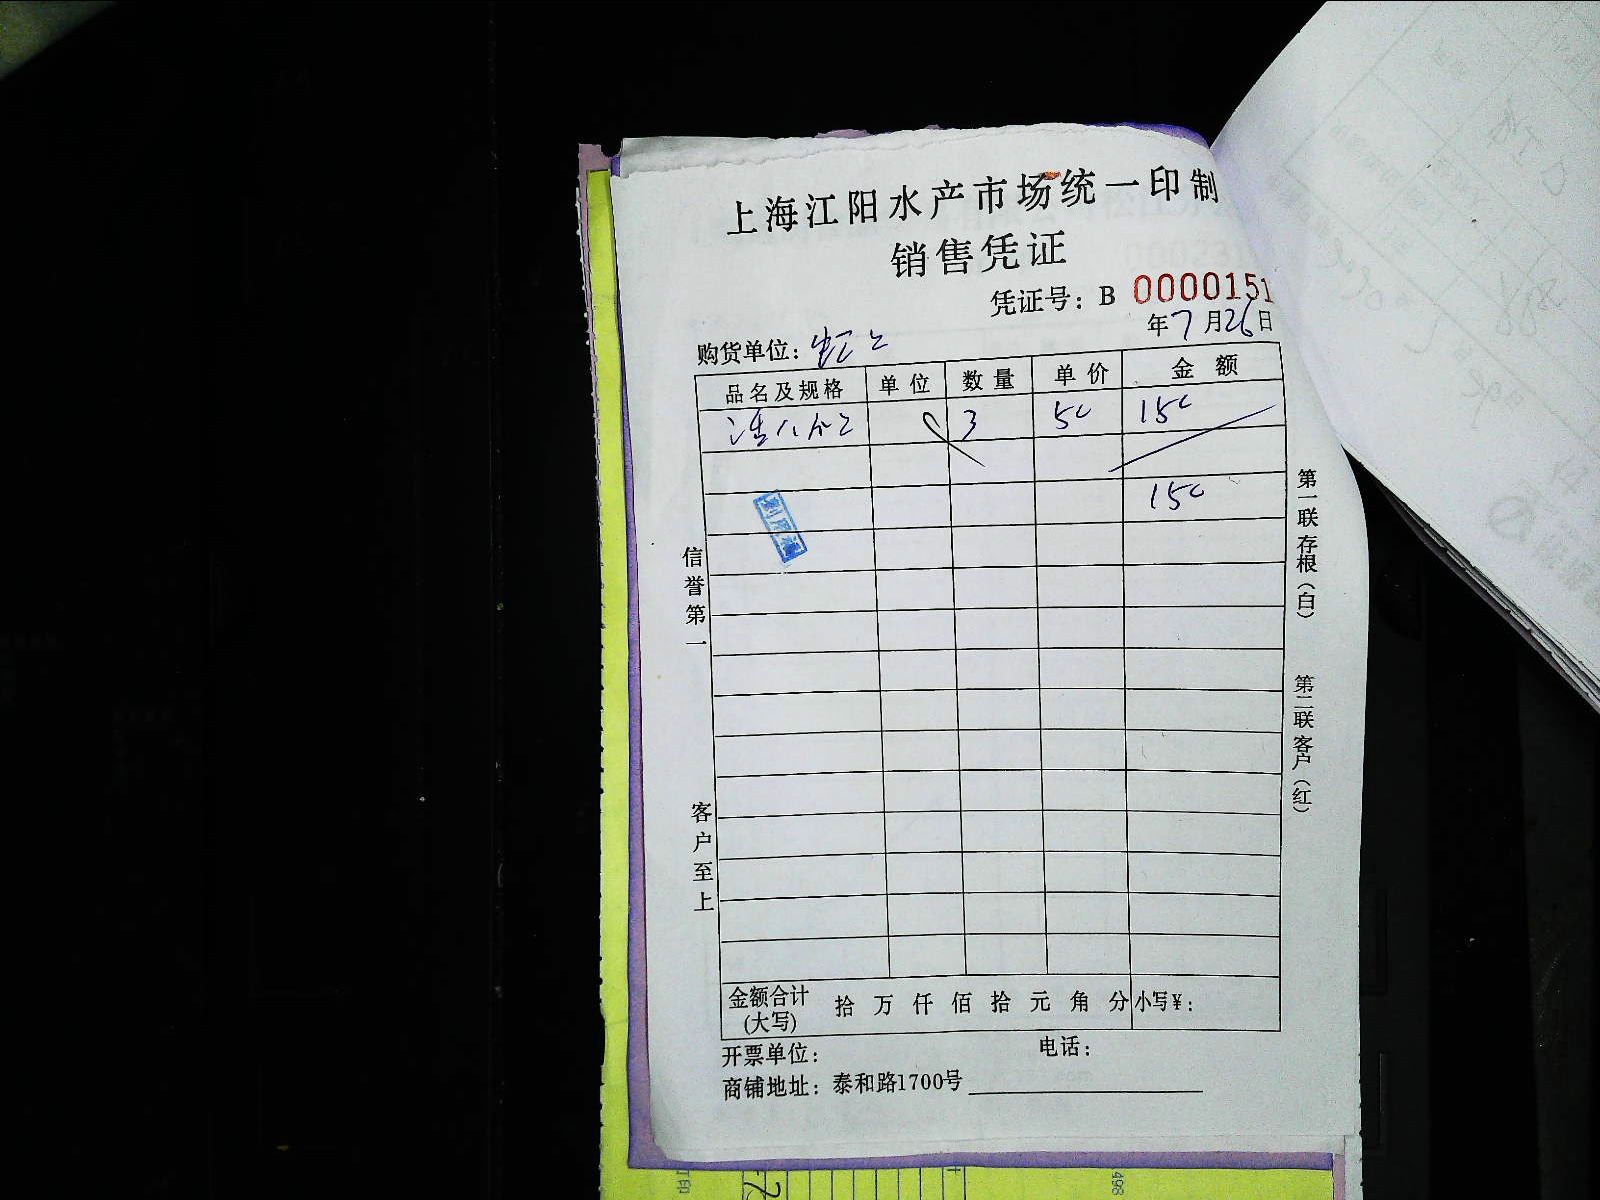 上海江阳水产市场统一印制
销售凭证
凭证号：B 0000151
年7月26日
购货单位：
品名及规格 单位 数量 单价 金额
3 50 150
150
信誉第一
客户至上
第一联存根（白）
第二联客户（红）
金额合计(大写) 拾万仟佰拾元角分 小写¥：
开票单位： 电话：
商铺地址：泰和路1700号